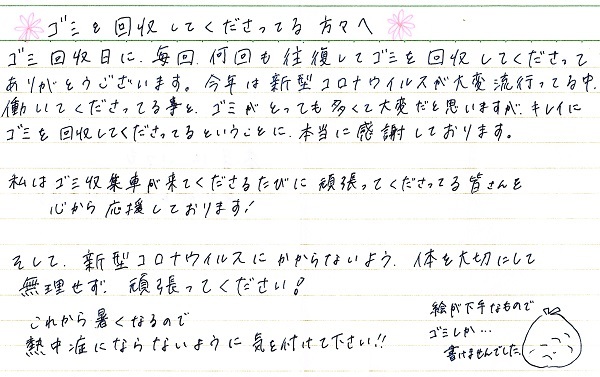 ゴミを回収してくださってる方々へ
ゴミ回収日に、毎回、何回も往復してゴミを回収してくださって
ありがとうございます。今年は新型コロナウイルスが大変流行ってる中、
働いてくださってる事と、ゴミがとっても多くて大変だと思いますが、キレイに
ゴミを回収してくださってるということに、本当に感謝しております。
私はゴミ収集車が来てくださるたびに頑張ってくださってる皆さんを
心から応援しております!
そして、新型コロナウイルスにかからないよう、体を大切にして
無理せず、頑張ってください!
これから暑くなるので
熱中症にならないように気を付けて下さい!!
絵が下手なもので
ゴミしか…
書けませんでした